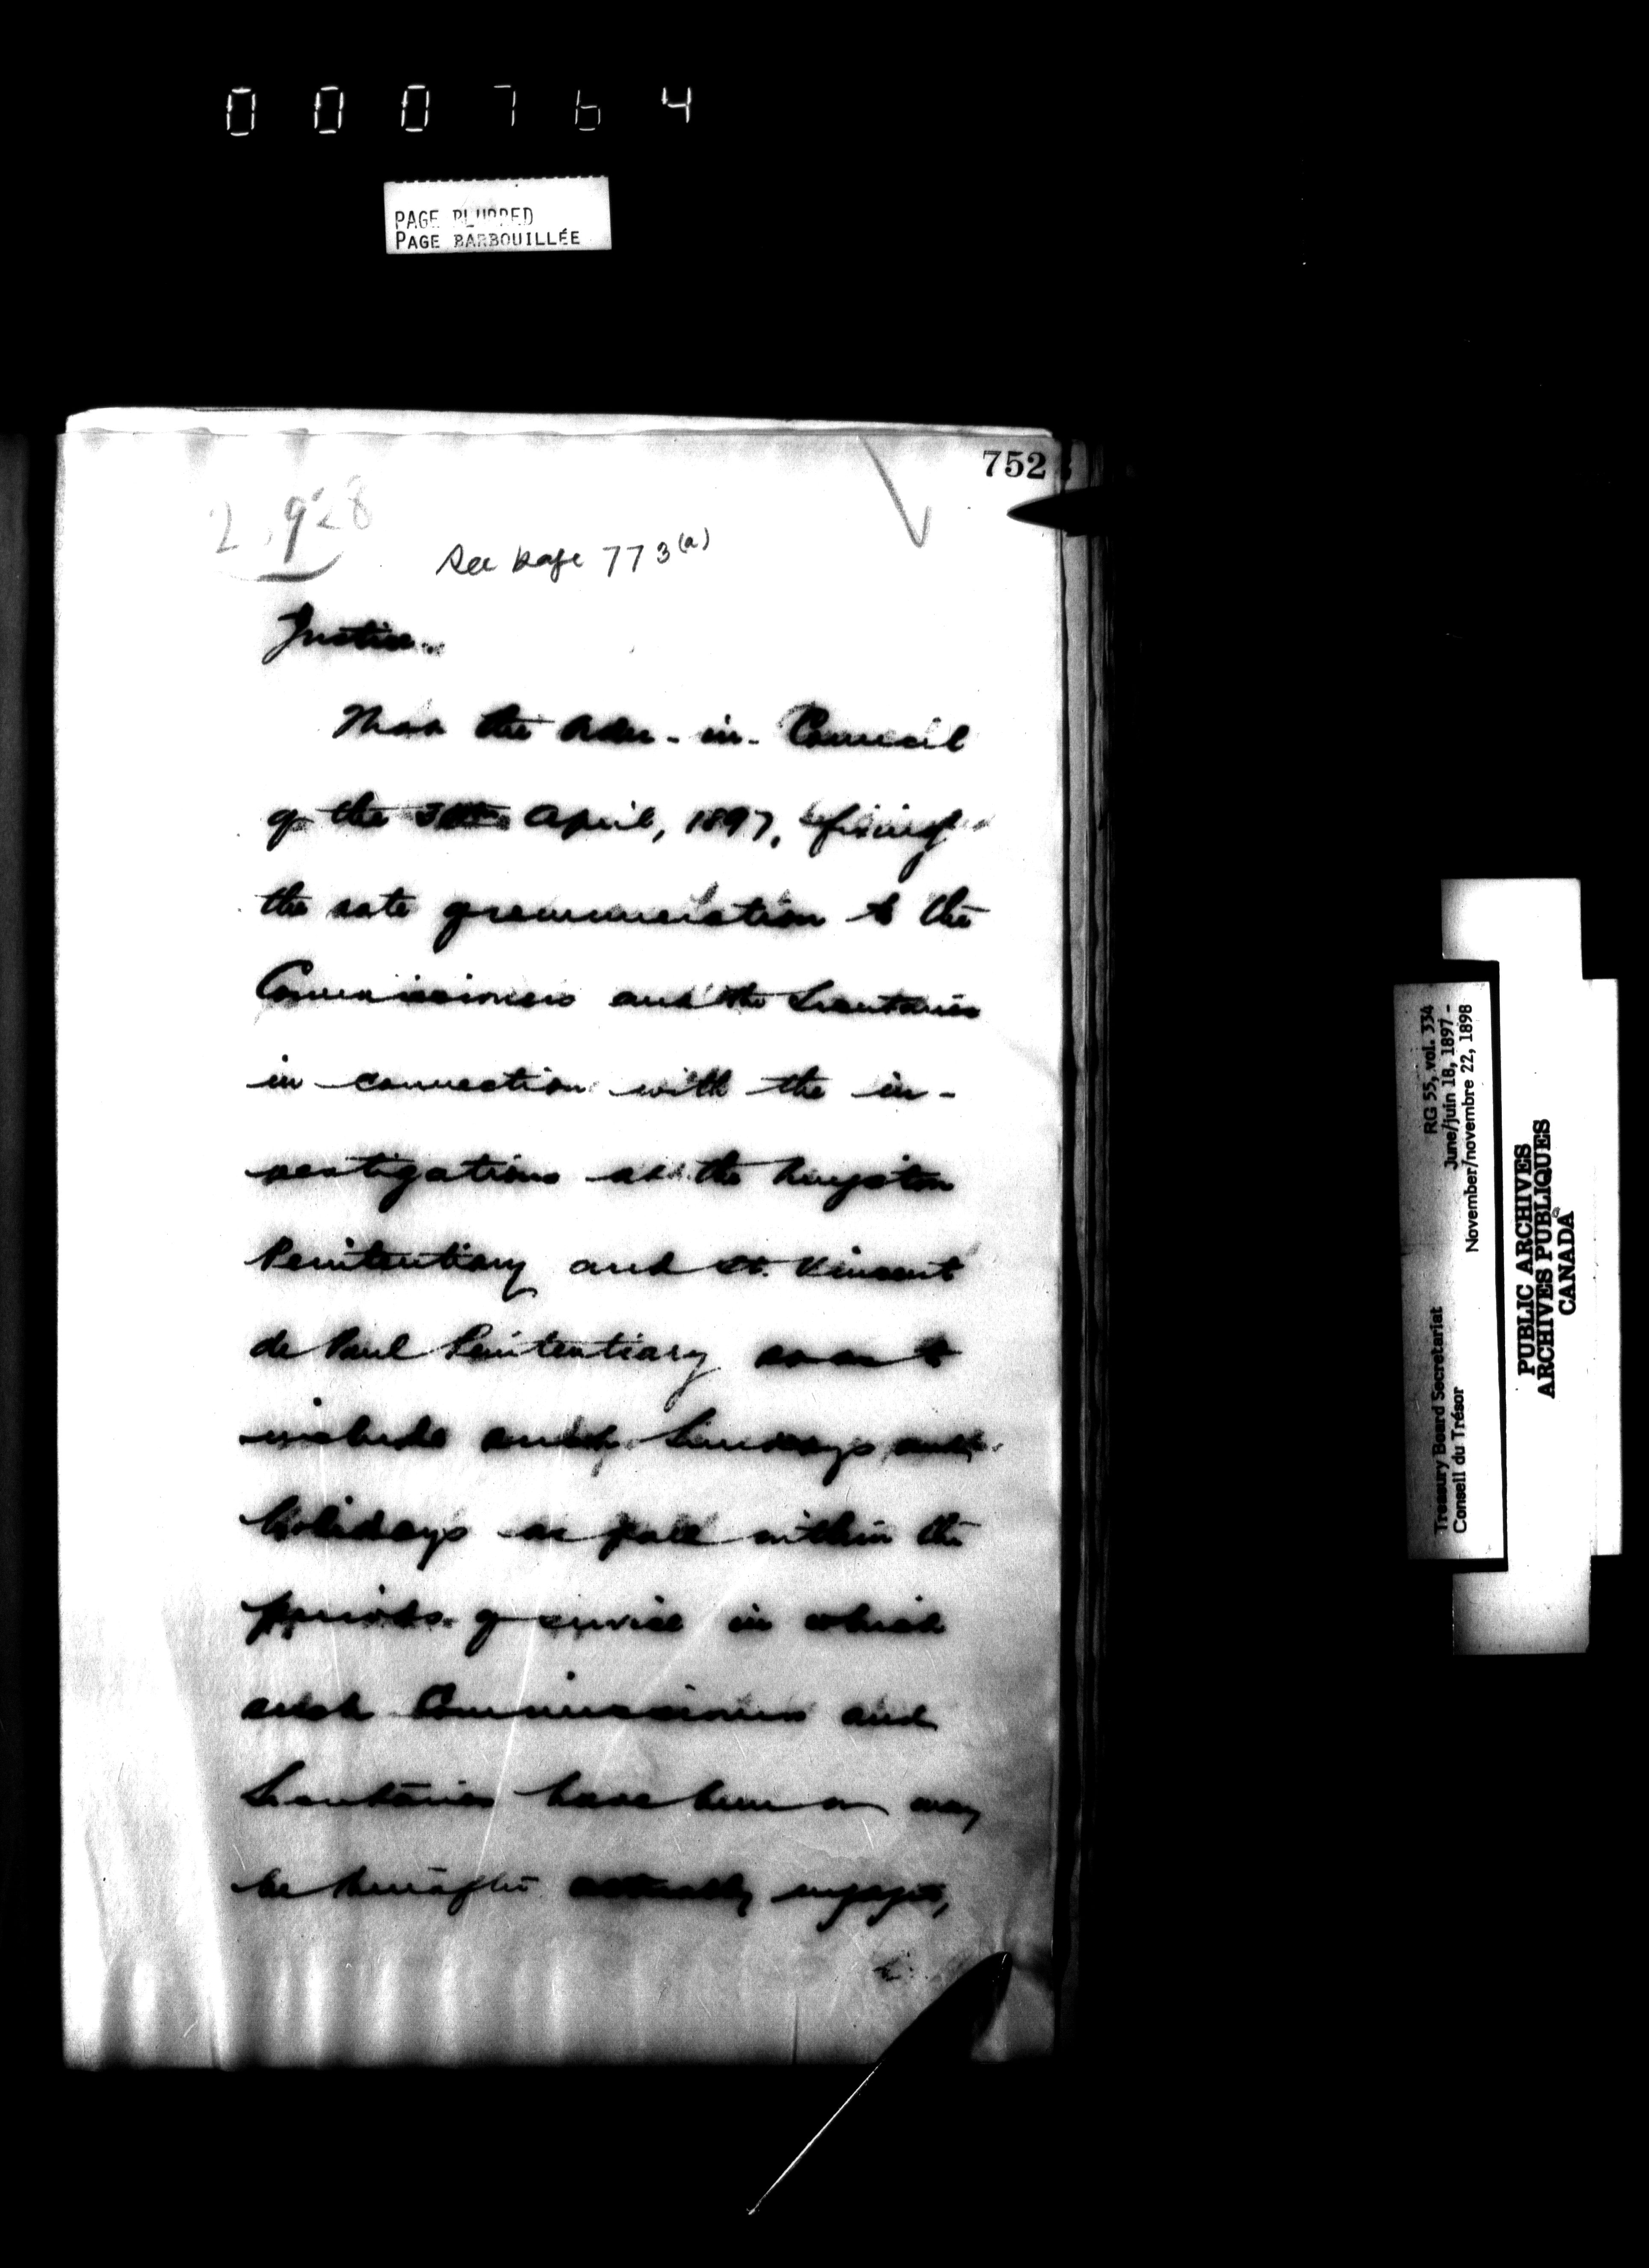 000764
PAGE BLURRED
PAGE BARBOUILLÉE
752
See page 773(a)
Justice.
That the Order-in-Council
of the 30th April, 1897, fixing
the rate of remuneration to the
Commissioners and the Secretaries
in connection with the in-
vestigations at the Kingston
Penitentiary and St. Vincent
de Paul Penitentiary so as to
include such Sundays and
holidays as fall within the
periods of service in which
such Commissioners and
Secretaries have been or may
be hereafter actually engaged,
RG 55, vol. 334
June/juin 18, 1897 -
November/novembre 22, 1898
Treasury Board Secretariat
Conseil du Trésor
PUBLIC ARCHIVES
ARCHIVES PUBLIQUES
CANADA